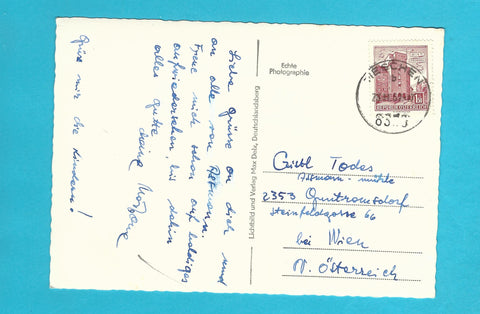 Liebe Grüsse an dich und
an alle von Assmann.
Freue mich schon auf baldiges
aufwiedersehen, bis dahin
alles gute
deine
Grüsse mir die Kinder!
Echte
Photographie
Lichtbild und Verlag Max Deix, Deutschlandsberg
REPUBLIK ÖSTERREICH
Gittl Todes
Assmann-mühle
2353 Guntramsdorf
Steinfeldgasse 66
bei Wien
N. Österreich